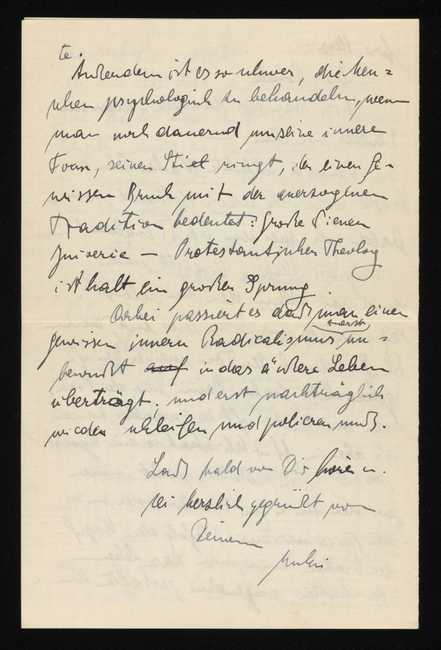 te.
Außerdem ist es so schwer, die Men=
schen psychologisch zu behandeln, wenn
man noch dauernd um seine innere
Form, seinen Stiel ringt, der einen Ge-
wissen Bruch mit der anerzogenen
Tradition bedeutet: Große Wiener
Juiverie – Protestantischen Theolog
ist halt ein großer Sprung.
Dabei passiert es daß man einen
gewissen innern Radicalismus un=
bewußt auf in das äußere Leben
überträgt. und erst nachträglich
wieder schleifen und polieren muß.
Laß bald von Dir hören u.
sei herzlich gegrüßt von
Deinem